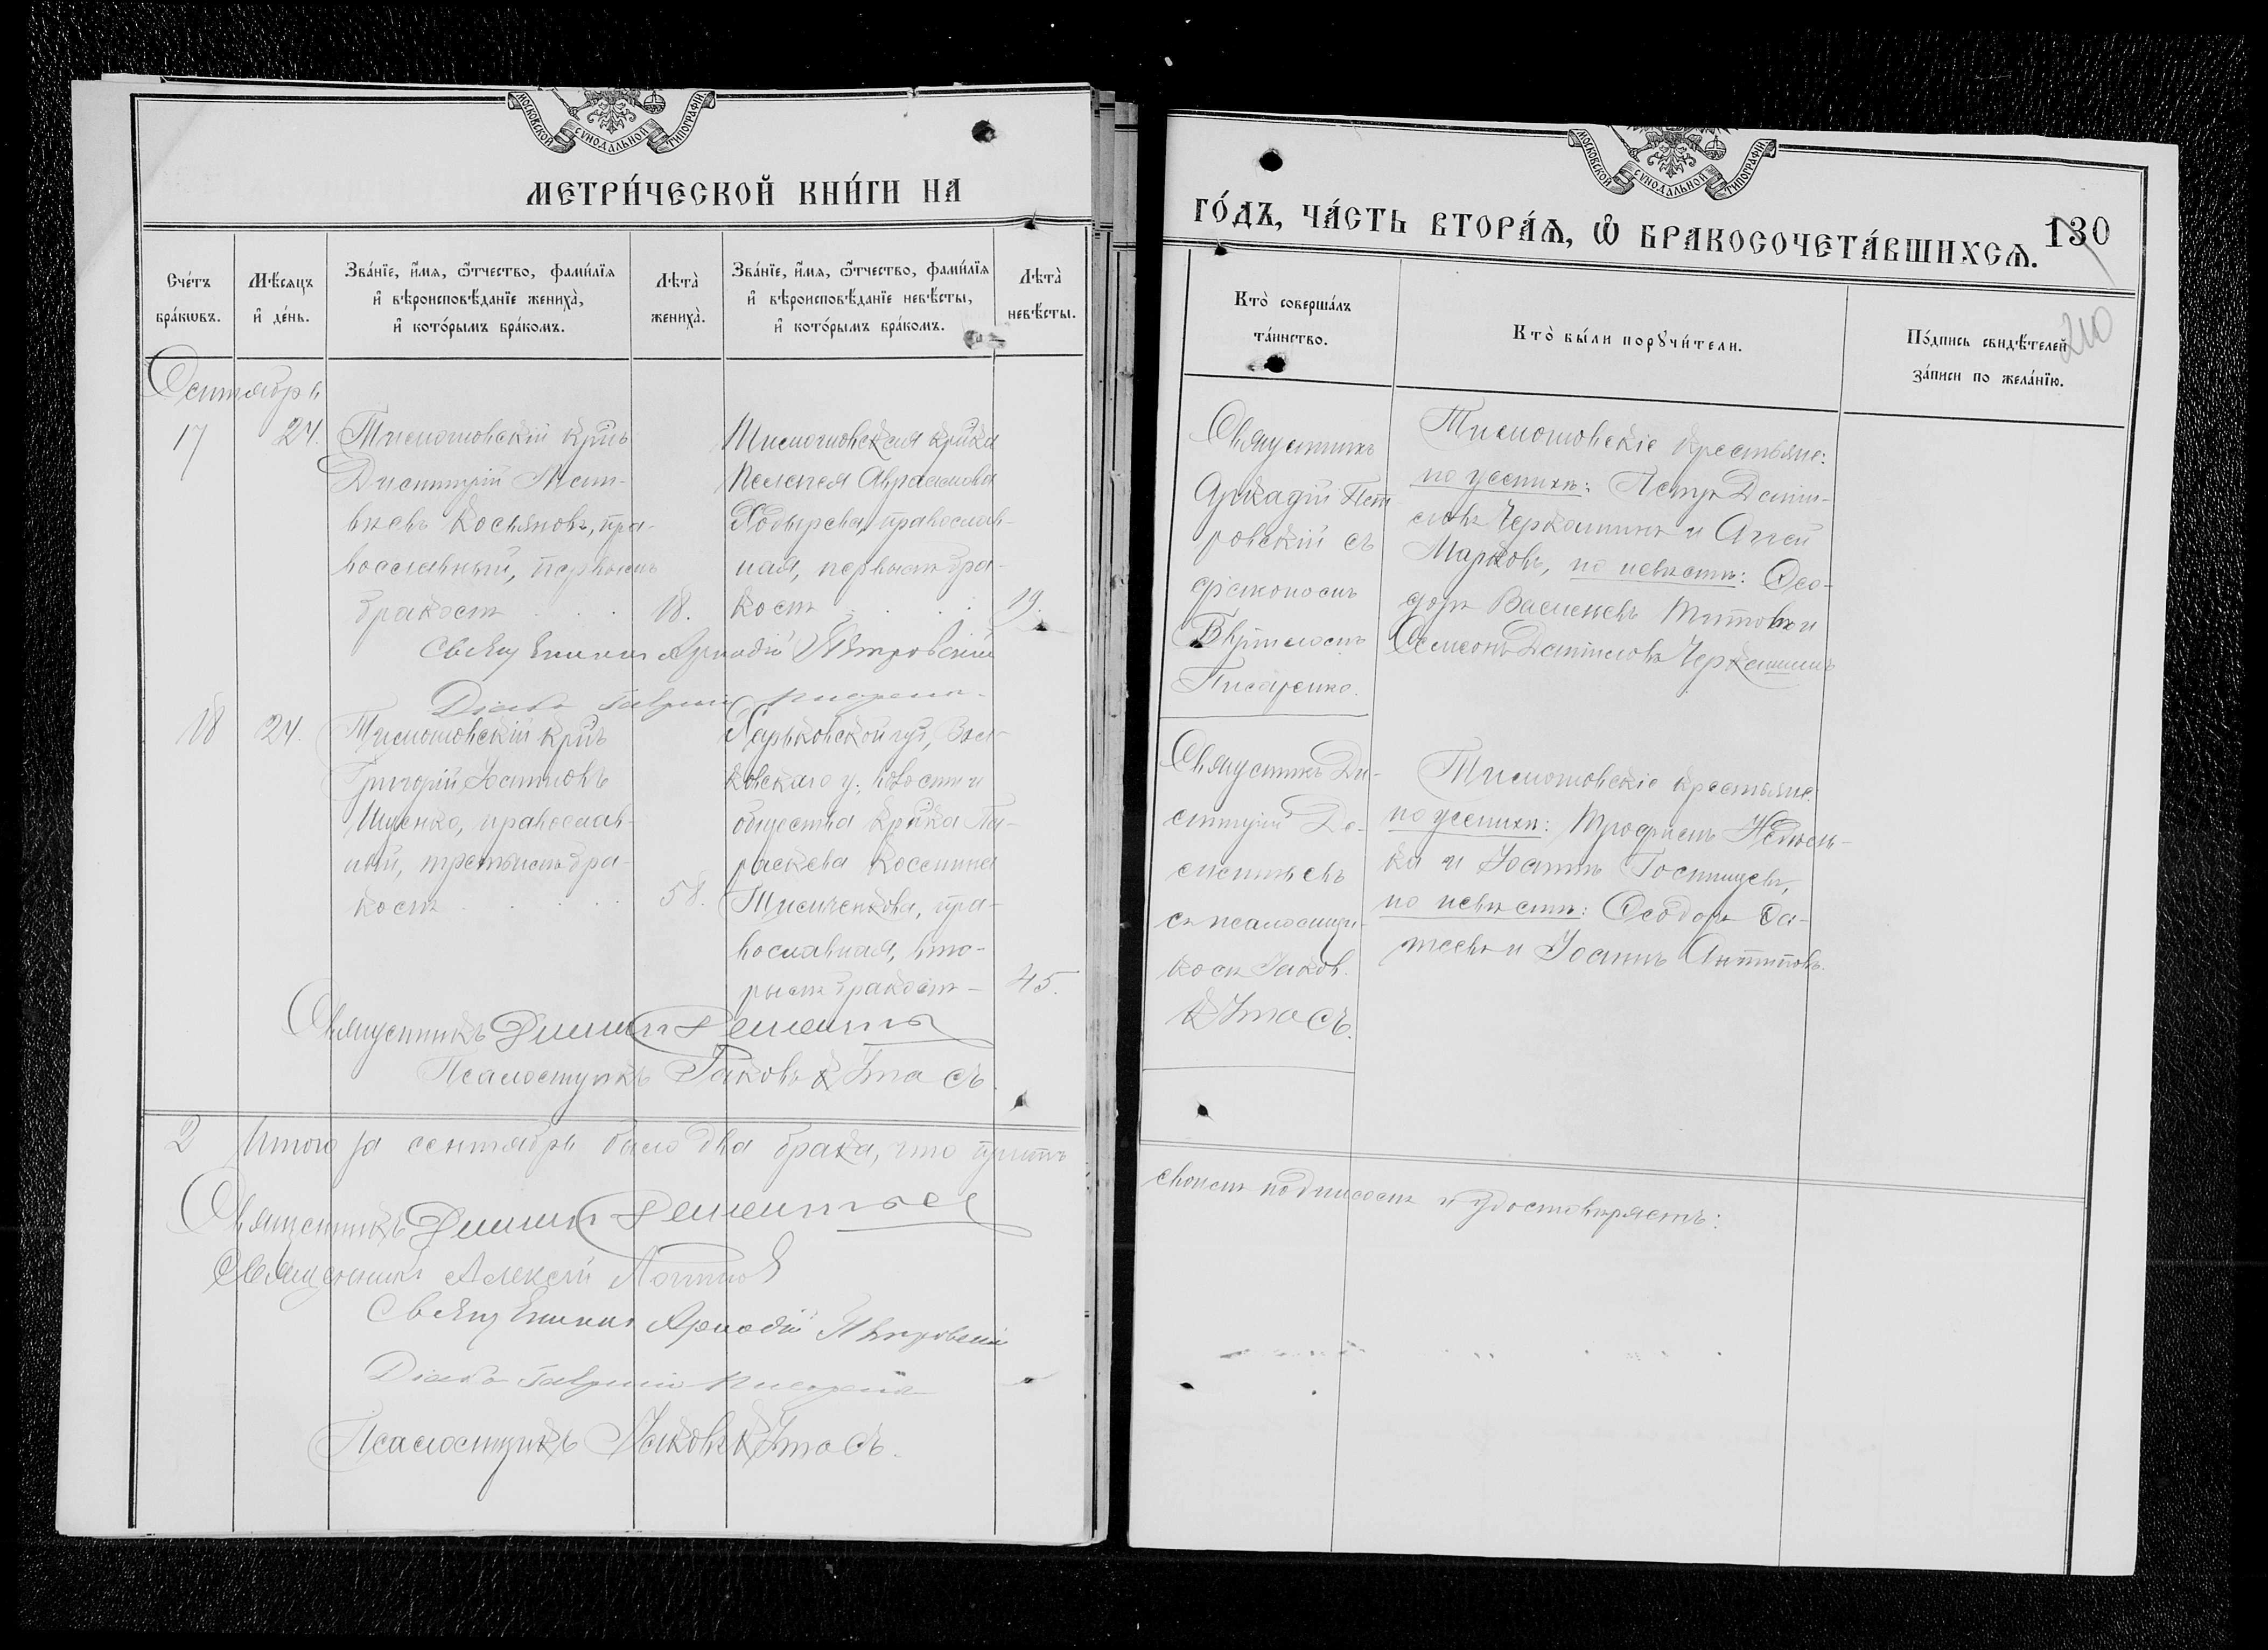 МОСКОВСКОЙ СѴНОДАЛЬНОЙ ТИПОГРАФІИ
МЕТРИ́ЧЕСКОЙ КНИ́ГИ НА
Сче́тъ бра́кѡвъ.
Мѣ́сяцъ и҆ де́нь.
Зва́нїе, и҆́мя, ѻ҆́тчество, фами́лїя и҆ вѣроисповѣ́данїе жениха̀, и҆ кото́рымъ бра́комъ.
Лѣта̀ жениха̀.
Зва́нїе, и҆́мя, ѻ҆́тчество, фами́лїя и҆ вѣроисповѣ́данїе невѣ́сты, и҆ кото́рымъ бра́комъ.
Лѣта̀ невѣ́сты.
Сентябрь
17
24.
Тимошовскій кр͠нъ
Димитрій Мат-
вѣевъ Косьяновъ, пра-
вославный, первымъ
бракомъ
18.
Тимошовская кр͠нка
Пелагея Авраамова
православ-
ная, первымъ бра-
комъ
19.
Священникъ Аркадій Петровскій
Діаконъ Гавріилъ Писаренко
18
24.
Тимошовскій кр͠нъ
Григорій Іоанновъ
Ищенко, православ-
ный, третьимъ бра-
комъ
58.
Харьковской губ,
у.
общества кр͠нка Па-
раскева Космина
пра-
вославная, вто-
рымъ бракомъ
45.
Священникъ Димитрій Дементьевъ
Псаломщикъ Іаковъ Кутасъ.
2 Итого за сентябрь было два брака, что причтъ
Священникъ Димитрій Дементьевъ
Священникъ Алексій
Священникъ Аркадій Петровскій
Діаконъ Гавріилъ Писаренко
Псаломщикъ Іаковъ Кутасъ.
МОСКОВСКОЙ СѴНОДАЛЬНОЙ ТИПОГРАФІИ
ГО́ДЪ, ЧА́СТЬ ВТОРА́Я, Ѽ БРАКОСОЧЕТА́ВШИХСЯ.
130
210
Кто̀ соверша́лъ та́инство.
Кто̀ бы́ли порꙋчи́тели.
По́дпись свидѣ́телей за́писи по жела́нїю.
Священникъ
Аркадій Пет
ровскій съ
діакономъ
Гавріиломъ
Писаренко.
Тимошовскіе крестьяне:
по женихѣ: Петръ Даніи-
ловъ Черкашинъ и Аггей
Марковъ, по невѣстѣ: Ѳео-
доръ Васильевъ Титовъ и
Симеонъ Даніиловъ Черкашинъ
Священникъ Ди-
митрій Де-
ментьевъ
съ псаломщи-
комъ Іаков.
Кутасъ.
Тимошовскіе крестьяне:
по женихѣ: Трофимъ
и Іоаннъ
по невѣстѣ: Ѳеодоръ
и Іоаннъ Антиповъ.
своимъ подписомъ и удостовѣряетъ: